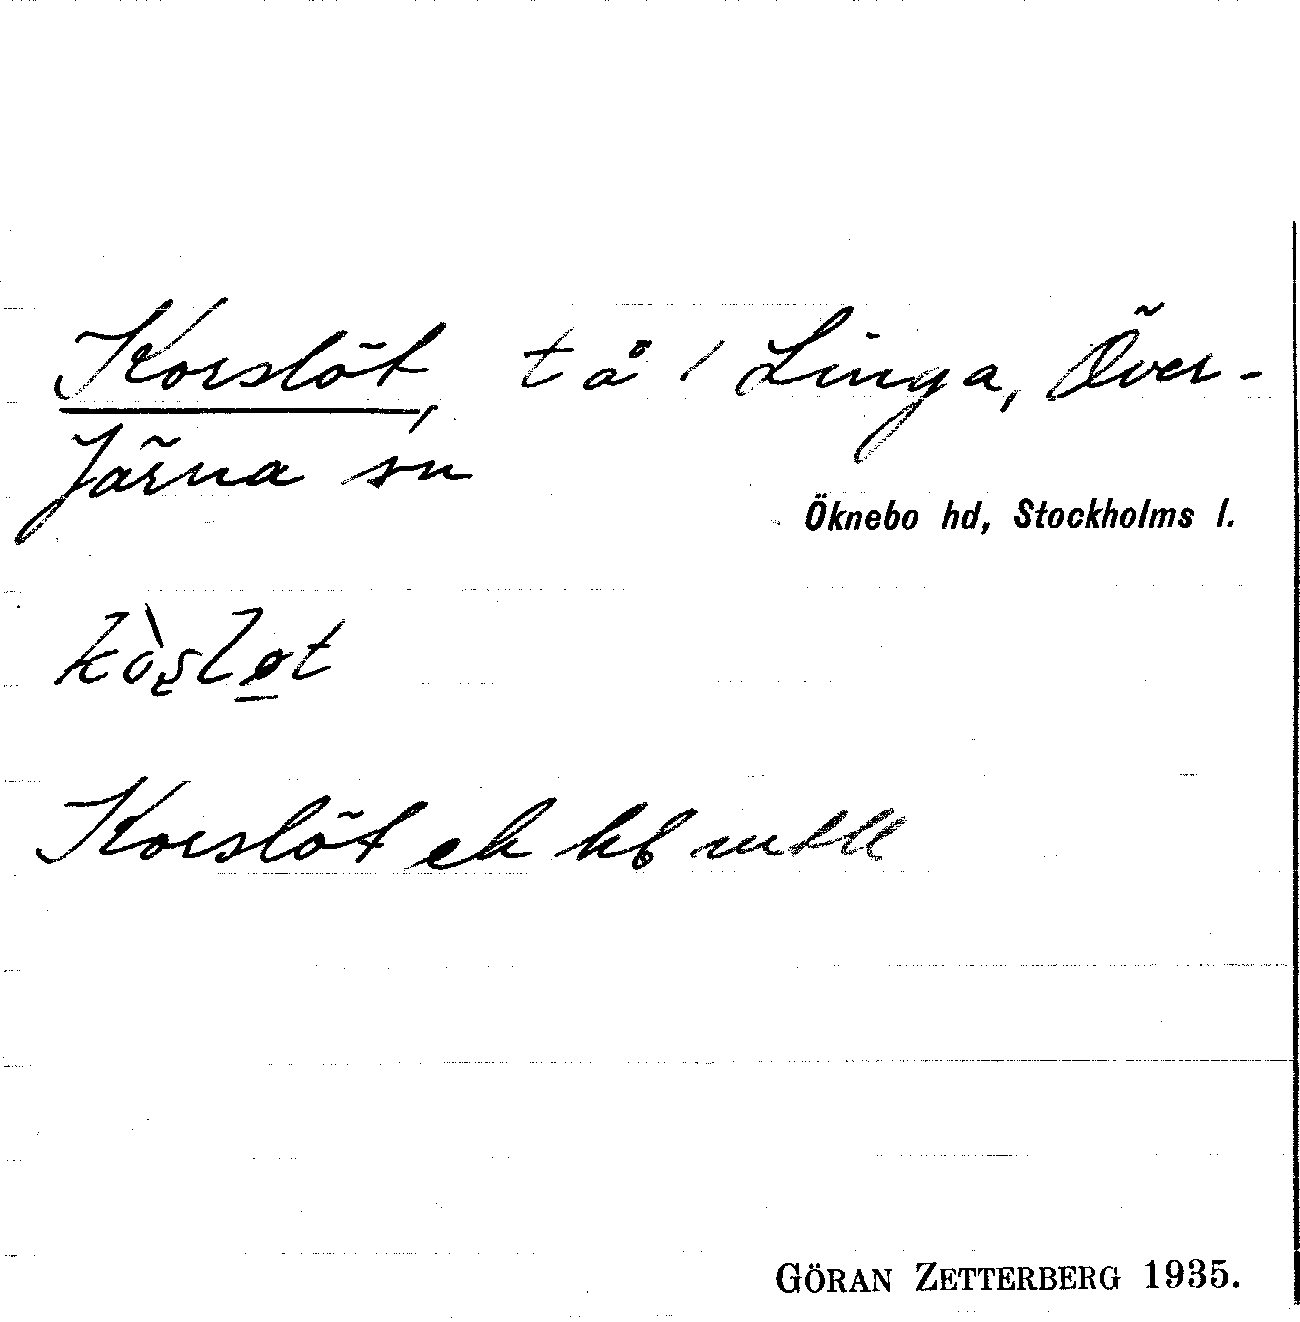 Korslöt, tå i Linga, Över-
Järna sn
Öknebo hd, Stockholms l.
Korslöt ek
GÖRAN ZETTERBERG 1935.